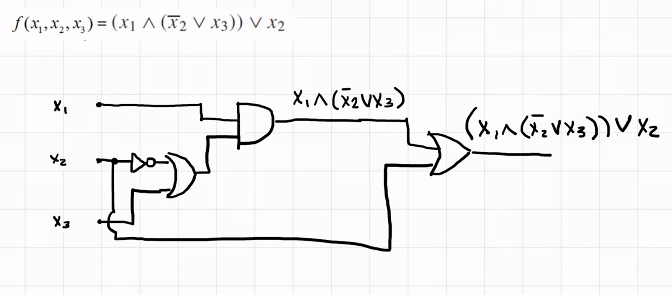 f(x₁,x₂,x₃) = (x₁ ∧ (x̅₂ ∨ x₃)) ∨ x₂
x₁∧(x̅₂∨x₃)
(x₁∧(x̅₂∨x₃))∨x₂
x₁
x₂
x₃